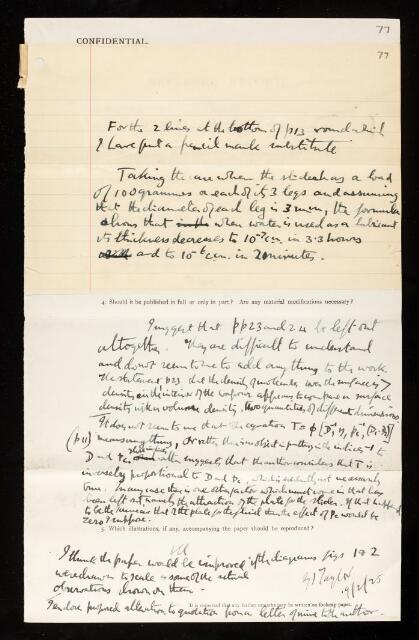 77
CONFIDENTIAL.
77
For the 2 lines at the bottom of p13 round which
I have put a pencil mark substitute
Taking the case when the slider has a load
of 100 grammes on each of its 3 legs and assuming
that the diameter of each leg is 3 mm, the formula
shows that when water is used as a lubricant
its thickness decreases to 10⁻⁵ cm in 3.3 hours
and to 10⁻⁶ cm. in 20 minutes.
4. Should it be published in full or only in part? Are any material modifications necessary?
I suggest that pp 23 and 24 be left out
altogether. They are difficult to understand
and do not seem to me to add anything to the work
The statement p23 that the density of molecules over the surface is >
density in the interior of the vapour appears to compare surface
density with volume density, two quantities of different dimensions
It does not seem to me that the equation T =
(p11) means anything, or rather the
D and Pc rather suggests that the author considers that T is
inversely proportional to D and Pc, which is evidently not necessarily
true. In any case there is one other factor which must come in that has
been left out namely the attraction of the plate for the slider. If that
to be the same as that of the plate for the fluid then the effect of Pc would be
zero I suppose.
5. Which illustrations, if any, accompanying the paper should be reproduced?
all
I think the paper would be improved if the diagrams figs 1 & 2
were drawn to scale & some of the actual
observations shown on them.
GI Taylor
19/2/25
It is requested that any further remarks may be written on foolscap paper.
I enclose proposed alteration to quotation from a letter of mine to the author.